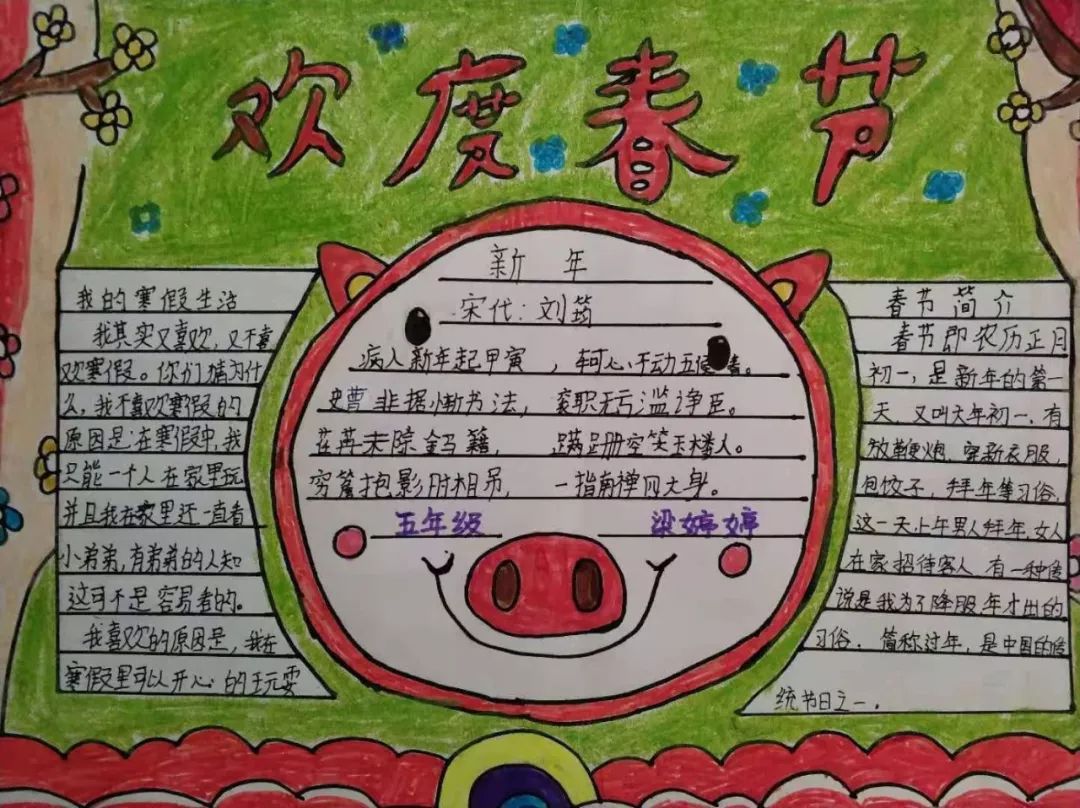 欢度春节
我的寒假生活
我其实又喜欢,又不喜
欢寒假。你们猜为什
么,我不喜欢寒假的
原因是:在寒假中,我
只能一个人在家里玩
并且我在家里还一直看
小弟弟,有弟弟的人知
这可不是容易看的。
我喜欢的原因是,我在
寒假里可以开心的玩耍
新年
宋代:刘筠
病入新年起甲寅,轲心不动五
史曹非据惭书法,衮职无亏滥诤臣。
金马籍,蹒跚空笑玉楼人。
穷簷抱影附相吊,一指南禅四大身。
五年级 梁婷婷
春节简介
春节即农历正月
初一,是新年的第一
天,又叫大年初一,有
放鞭炮、穿新衣服,
包饺子,拜年等习俗,
这一天上年男人拜年,女人
在家招待客人,有一种传
说是我为了降服年才出的
习俗.简称过年,是中国的传
统节日之一.